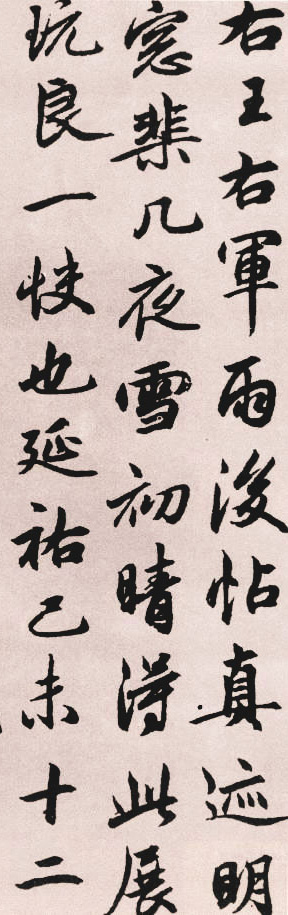 右王右軍雨後帖真迹明
窓棐几夜雪初晴得此展
玩良一快也延祐己未十二